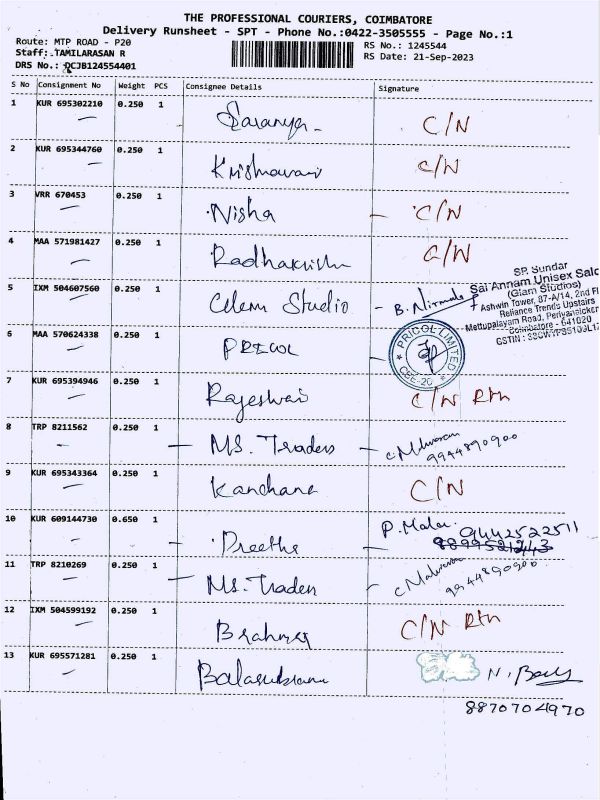 THE PROFESSIONAL COURIERS, COIMBATORE
Delivery Runsheet - SPT - Phone No.:0422-3505555 - Page No.:1
Route: MTP ROAD - P20
RS No.: 1245544
Staff: TAMILARASAN R
RS Date: 21-Sep-2023
DRS No.: QCJB124554401
S No Consignment No Weight PCS Consignee Details Signature
1 KUR 695302210 0.250 1 Saranya C/N
2 KUR 695344760 0.250 1 C/N
3 VRR 670453 0.250 1 Nisha C/N
4 MAA 571981427 0.250 1 Radhakrish C/N
5 IXM 504607560 0.250 1 Studio B. Nirmala
SP. Sundar
Sai Annam Unisex Salo
(Glam Studios)
Ashwin Tower, 87-A/14, 2nd Fl
Reliance Trends Upstairs
Mettupalayam Road, Periyanaicker
Coimbatore - 641020
GSTIN :
6 MAA 570624338 0.250 1 PRICOL
PRICOL LIMITED
CBE-20
7 KUR 695394946 0.250 1 Rajeshwari C/N Rtn
8 TRP 8211562 0.250 1 MS. Traders
9944890900
9 KUR 695343364 0.250 1 Kanchana C/N
10 KUR 609144730 0.650 1 Preetha P. Mala 9442522511
11 TRP 8210269 0.250 1 Ms. Traders
9944890900
12 IXM 504599192 0.250 1 C/N Rtn
13 KUR 695571281 0.250 1 Balasubramani
8870704970